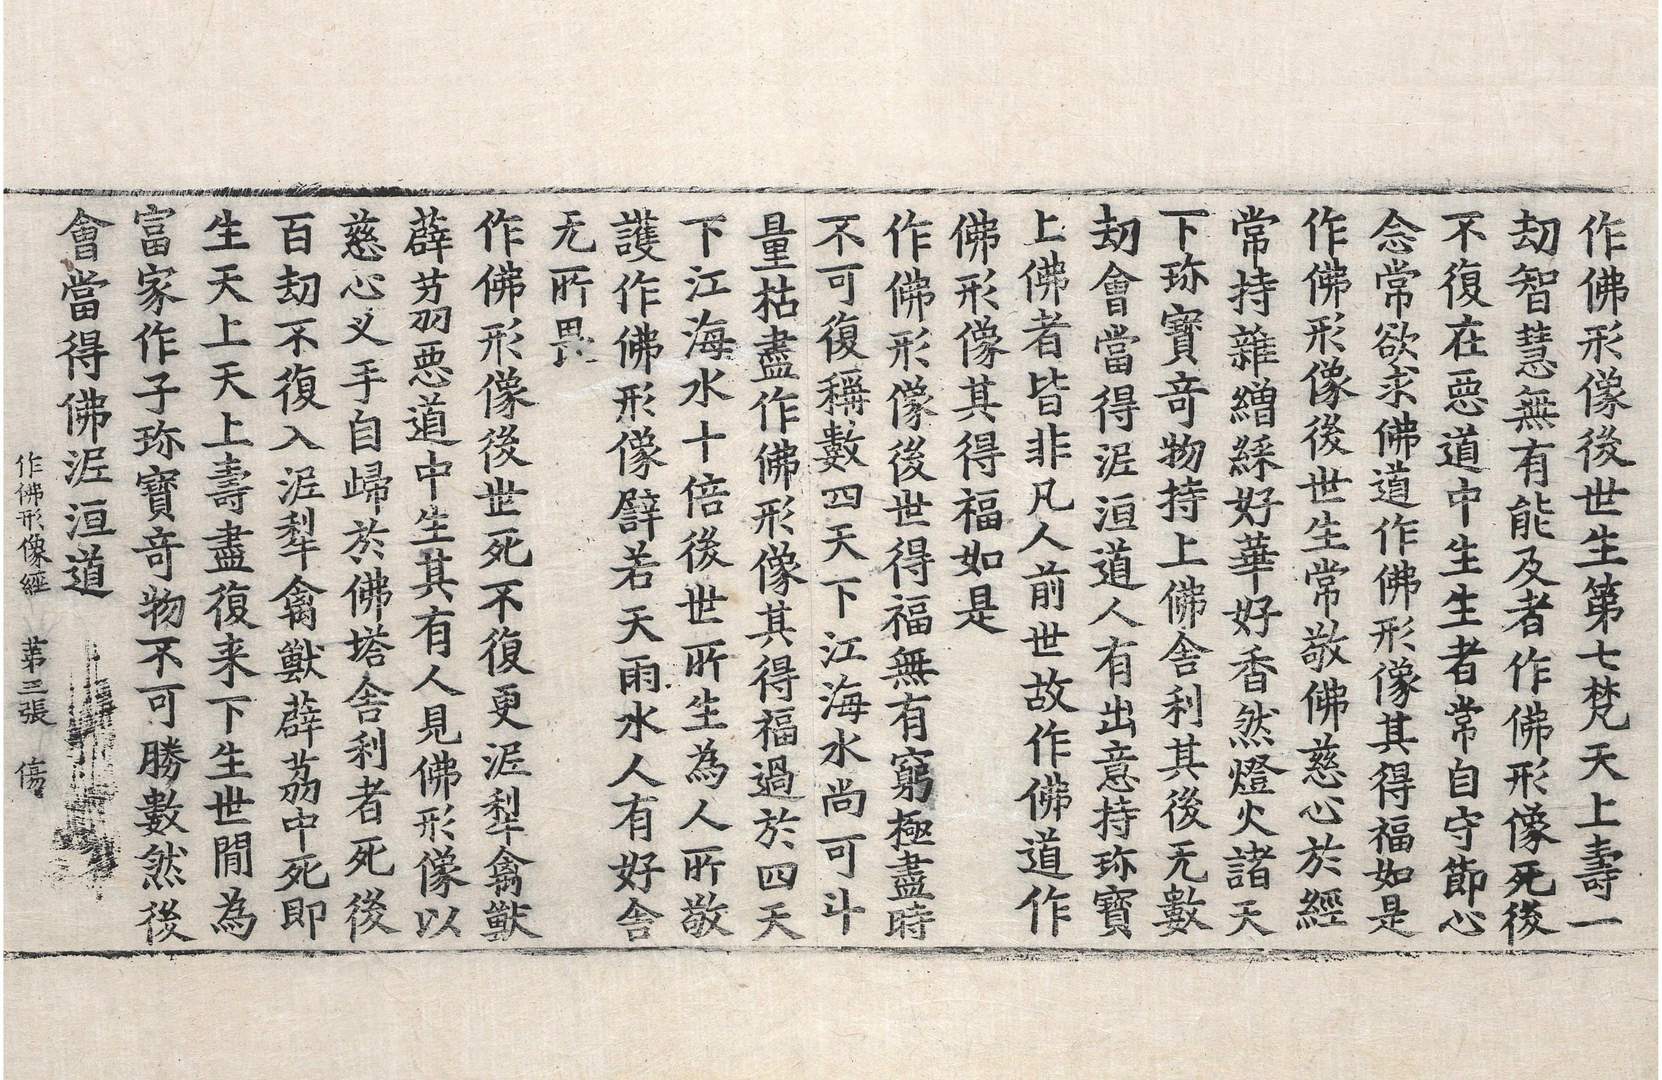 作佛形像後世生第七梵天上壽一
劫智慧無有能及者作佛形像死後
不復在惡道中生生者常自守節心
念常欲求佛道作佛形像其得福如是
作佛形像後世生常敬佛慈心於經
常持雜繒綵好華好香然燈火諸天
下珎寶竒物持上佛舍利其後无數
劫會當得泥洹道人有出意持珎寶
上佛者皆非凡人前世故作佛道作
佛形像其得福如是
作佛形像後世得福無有窮極盡時
不可復稱數四天下江海水尚可斗
量枯盡作佛形像其得福過於四天
下江海水十倍後世所生為人所敬
護作佛形像譬若天雨水人有好舍
无所畏
作佛形像後世死不復更泥犁禽獸
薜茘惡道中生其有人見佛形像以
慈心叉手自歸於佛塔舍利者死後
百劫不復入泥犁禽獸薜茘中死即
生天上天上壽盡復来下生世閒為
富家作子珎寶竒物不可勝數然後
會當得佛泥洹道
作佛形像經 第三張 傷